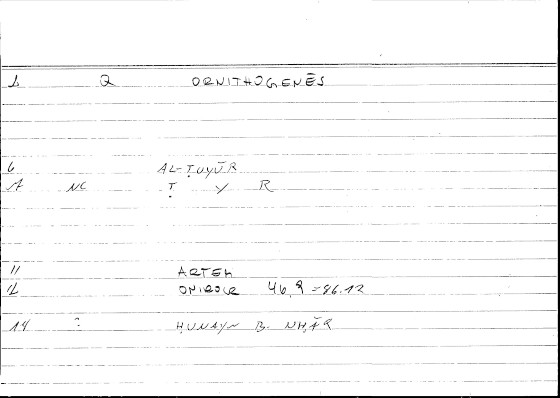 1 Q ORNITHOGENĒS
6 AL-ṬUYŪR
A NC Ṭ Y R
11 ARTEM
12 ONIROCR 46,9 = 86.12
14 ? ḤUNAYN B.